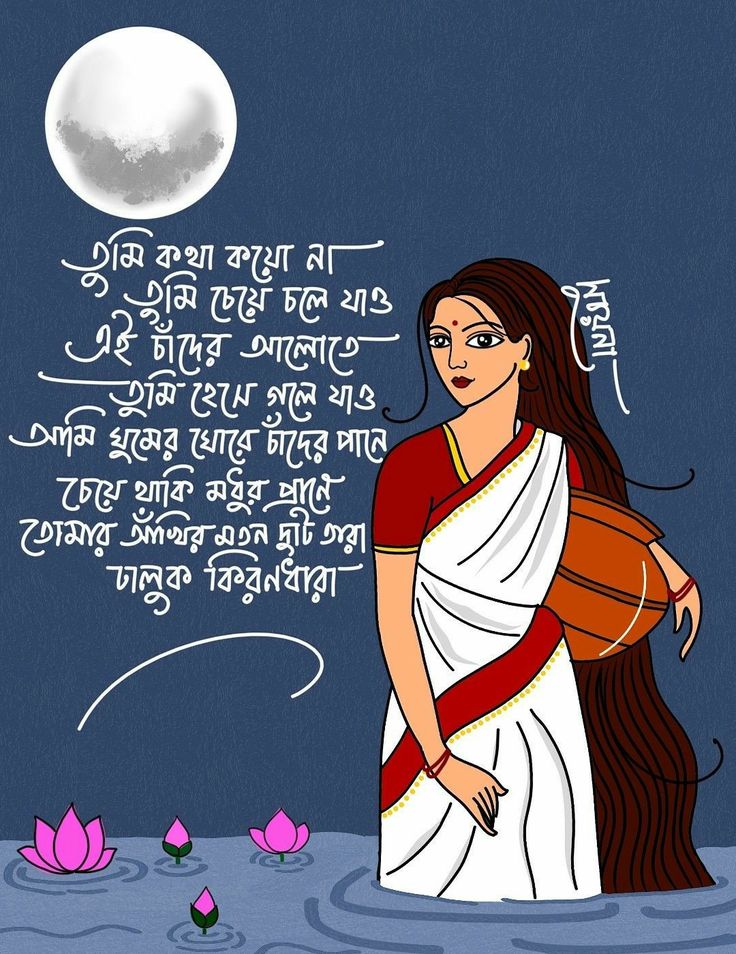 তুমি কথা কয়ো না
তুমি চেয়ে চলে যাও
এই চাঁদের আলোতে
তুমি হেসে গলে যাও
আমি ঘুমের ঘোরে চাঁদের পানে
চেয়ে থাকি মধুর প্রানে
তোমার আঁখির মতন দুটি তারা
ঢালুক কিরনধারা